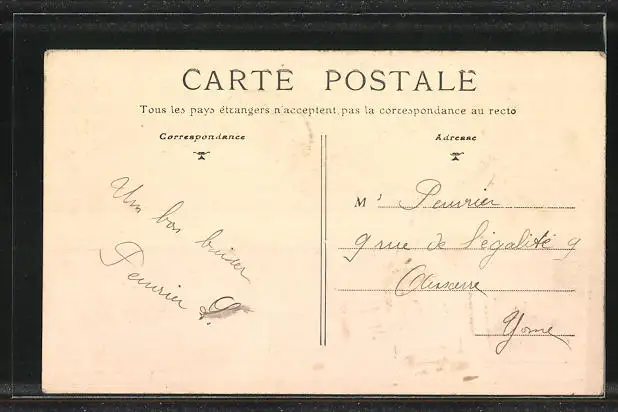 CARTE POSTALE
Tous les pays étrangers n'acceptent pas la correspondance au recto
Correspondance
Adresse
Un bon baiser
Peuvrier
Mr Peuvrier
9 rue de l'égalité 9
Auxerre
Yonne